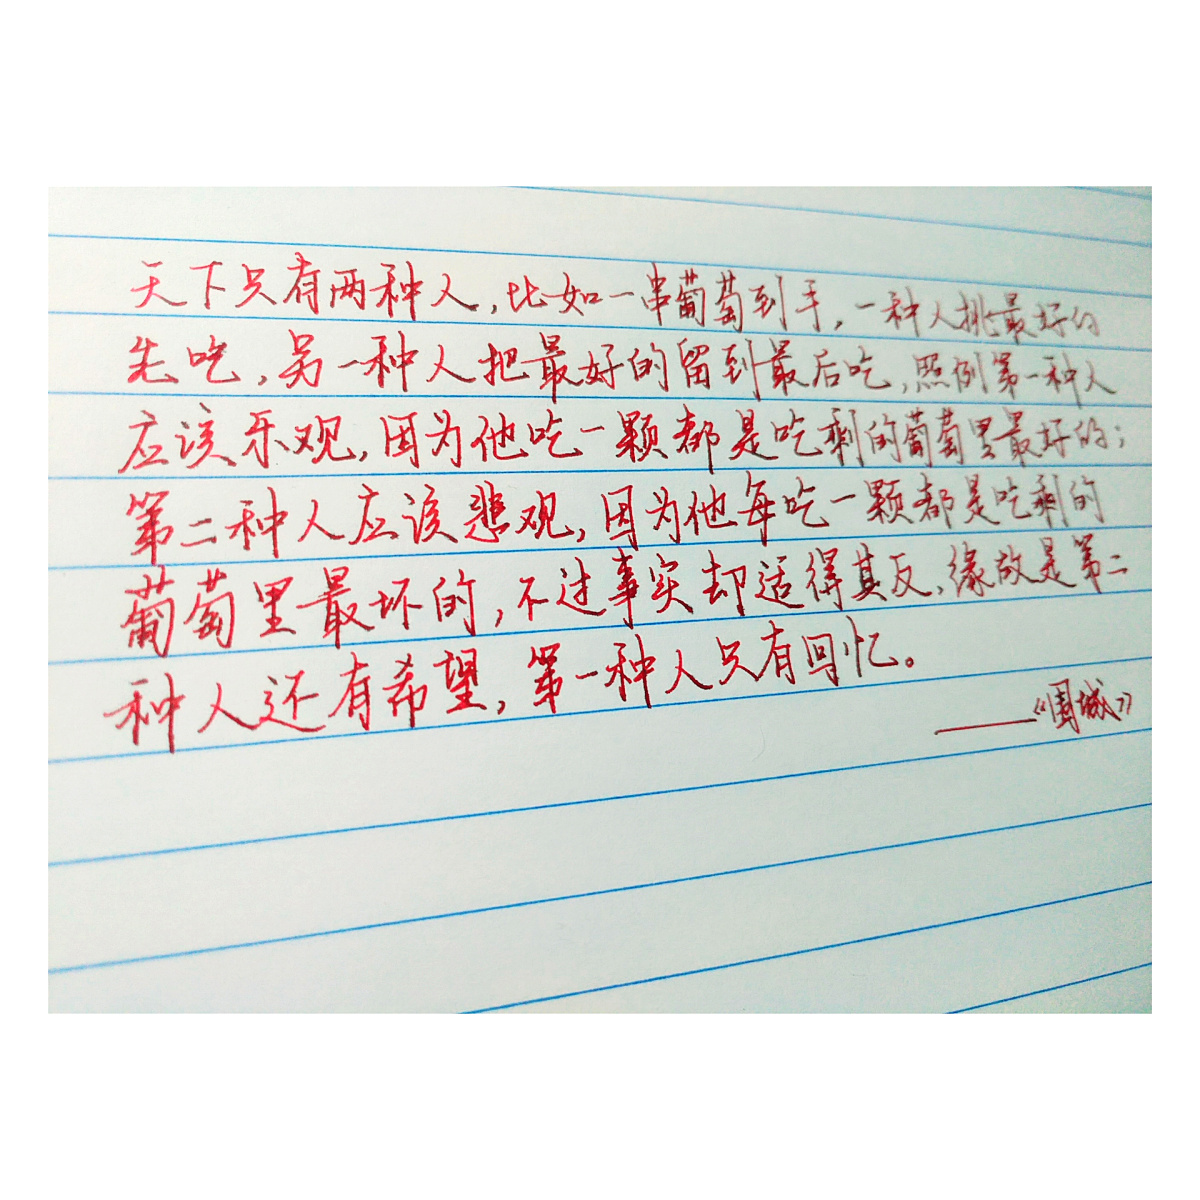 天下只有两种人，比如一串葡萄到手，一种人挑最好的
先吃，另一种人把最好的留到最后吃，照例第一种人
应该乐观，因为他吃一颗都是吃剩的葡萄里最好的；
第二种人应该悲观，因为他每吃一颗都是吃剩的
葡萄里最坏的，不过事实却适得其反，缘故是第二
种人还有希望，第一种人只有回忆。
——《围城》